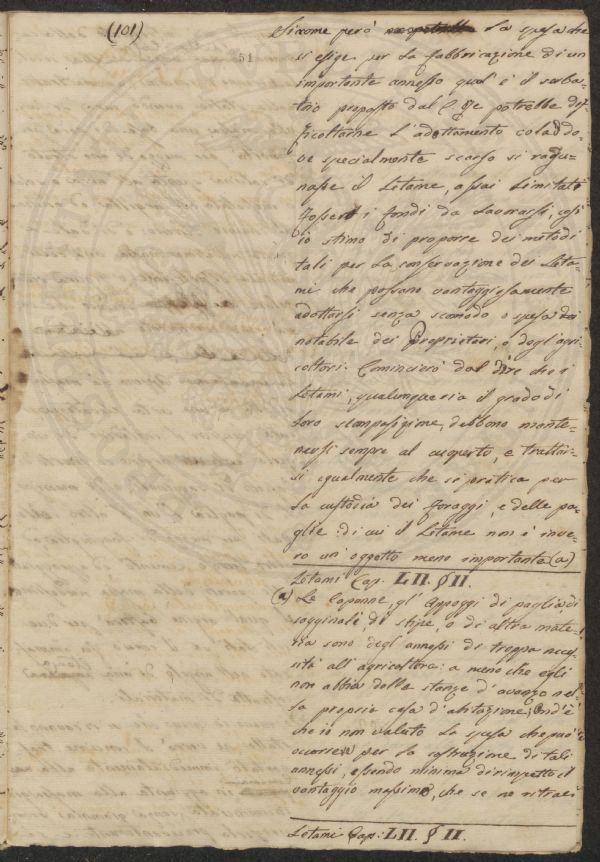 (101)
51
Siccome però la spesa che
si esige per la fabbricazione di un
importante annesso qual'è il serba-
toio proposto dal potrebbe dif
ficoltarne l'adottamento colà do-
ve specialmente scarso si radu-
nasse il Letame, o assai limitati
fossero i fondi da lavorarsi, così
io stimo di proporre dei metodi
tali per la conservazione dei Leta-
mi che possono vantaggiosamente
adottarsi senza scomodo o spesa
notabile dei Proprietarj, o degl'agri-
coltori. Comincierò dal dire che i
Letami, qualunque sia il grado di
loro scomposizione, debbono mante-
nersi sempre al coperto, e trattar-
si egualmente che si pratica per
la custodia dei foraggi, e delle pa-
glie: di cui il Letame non è inve-
ro un'oggetto meno importante (a)
Letami Cap. LII. § II.
(a) Le Capanne, gl'Appoggi di paglia, di
sagginali di stipe, o di altra mate-
ria sono degl'annessi di troppa neces-
sità all'agricoltore: a meno che egli
non abbia delle stanze d'avanzo nel-
la propria casa d'abitazione; Ond'è
che io non valuto la spesa che può
occorrere per la costruzione di tali
annessi, essendo minima dirimpetto il
vantaggio massimo, che se ne ritrae
Letami Cap: LII. § II.